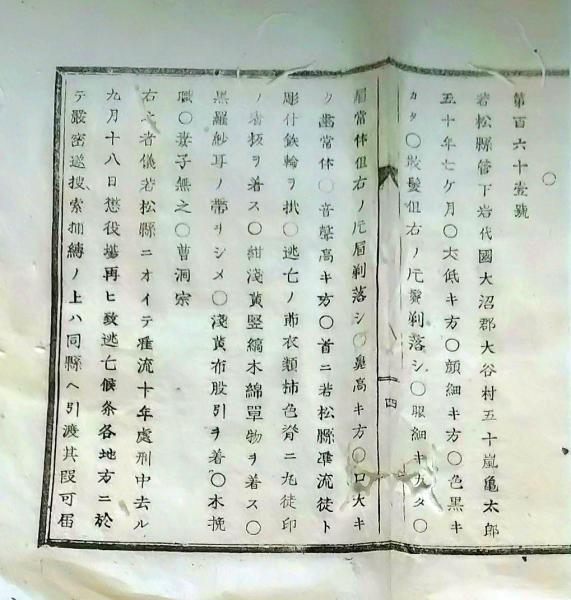 ○
第百六十壹號
若松縣管下岩代國大沼郡大谷村五十嵐亀太郎
五十年七ケ月○丈低キ方○顔細キ方○色黒キ
カタ○散髮但右ノ片鬢剃落シ○眼細キカタ○
四
眉常体但右ノ片眉剃落シ○鼻高キ方○口大キ
ク歯常体○音聲高キ方○首ニ若松縣准流徒ト
彫付鉄輪ヲ
○逃亡ノ節衣類柿色脊ニ丸徒印
ノ
ヲ着ス○紺淺黄竪縞木綿單物ヲ着ス○
黒羅紗耳ノ帶ヲシメ○淺黄布股引ヲ着○木挽
職○妻子無之○曹洞宗
右之者儀若松縣ニオイテ准流十年處刑中去ル
九月十八日懲役塲再ヒ致逃亡候条各地方ニ於
テ嚴密遂搜索捕縛ノ上ハ同縣ヘ引渡其段可届